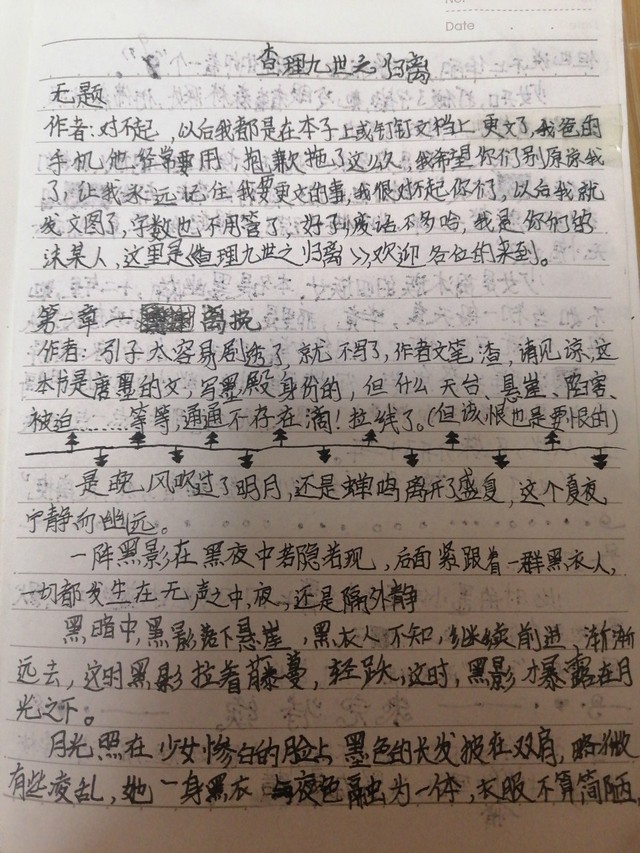 No.
Date
查理九世之归离
无题
作者:对不起,以后我都是在本子上或钉钉文档上更文了,我爸的
手机,他经常要用,抱歉拖了这么久,我希望你们别原谅我
了,让我永远记住我要更文的事,我很对不起你们了,以后我就
发文图了,字数也不用管了,好了,废话不多哈,我是你们的
沫某人,这里是《查理九世之归离》,欢迎各位的来到。
第一章——离挽
作者:引子太容易剧透了,就不写了,作者文笔渣,请见谅,这
本书是唐墨的文,写墨殿身份的,但什么天台、悬崖、陷害、
被迫……等等,通通不存在滴!拉线了。(但该恨也是要恨的)
是晚风吹过了明月,还是蝉鸣离开了盛夏,这个夏夜
宁静而幽远。
一阵黑影在黑夜中若隐若现,后面紧跟着一群黑衣人,
一切都发生在无声之中,夜,还是隔外静
黑暗中,黑影落下悬崖,黑衣人不知,继续前进,渐渐
远去,这时黑影拉着藤蔓,轻跃,这时,黑影才暴露在月
光之下。
月光照在少女惨白的脸上,黑色的长发披在双肩,略微
有些凌乱,她一身黑衣与夜色融为一体,衣服不算简陋,